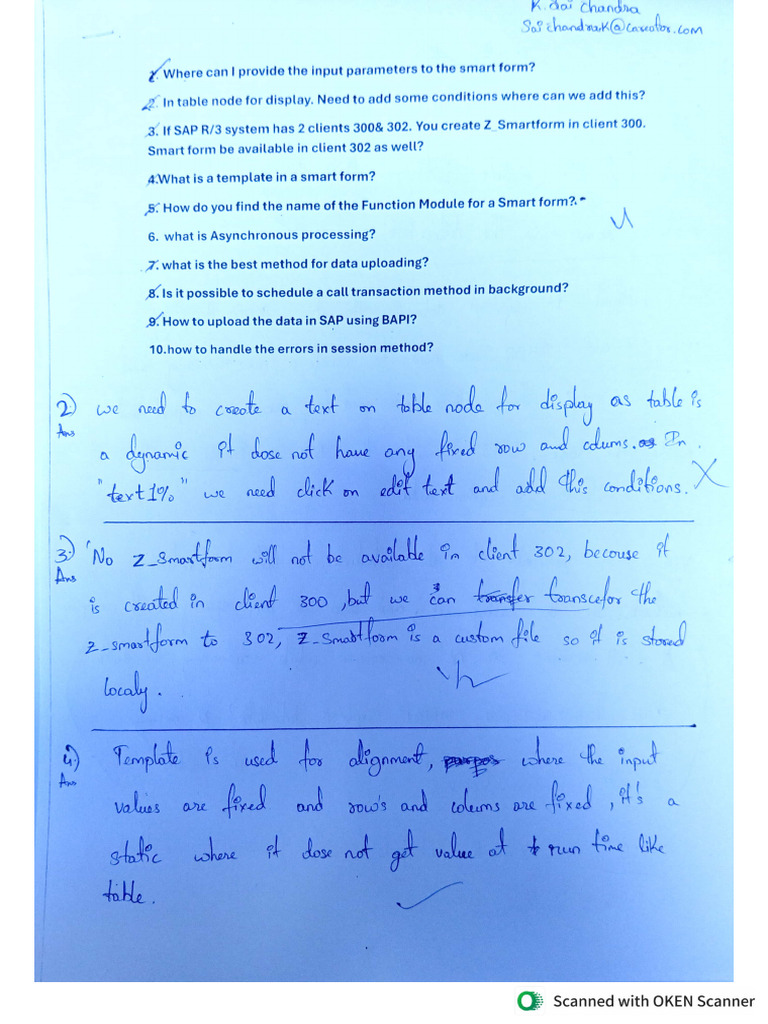 K. Sai Chandra
SaichandraK@careator.com
1. Where can I provide the input parameters to the smart form?
2. In table node for display. Need to add some conditions where can we add this?
3. If SAP R/3 system has 2 clients 300& 302. You create Z_Smartform in client 300.
Smart form be available in client 302 as well?
4.What is a template in a smart form?
5. How do you find the name of the Function Module for a Smart form?.
6. what is Asynchronous processing?
7. what is the best method for data uploading?
8. Is it possible to schedule a call transaction method in background?
9. How to upload the data in SAP using BAPI?
10.how to handle the errors in session method?
2) we need to create a text on table node for display as table is
Ans
a dynamic it dose not have any fixed row and colums. In
"text1%" we need click on edit text and add this conditions.
3.) No Z_Smartform will not be available in client 302, becouse it
Ans
is created in client 300, but we can transfer transcefor the
Z_smartform to 302, Z_Smartform is a custom file so it is stored
localy.
4.) Template is used for alignment, where the input
Ans
values are fixed and row's and coleums are fixed, it's a
static where it dose not get value at run time like
table.
Scanned with OKEN Scanner